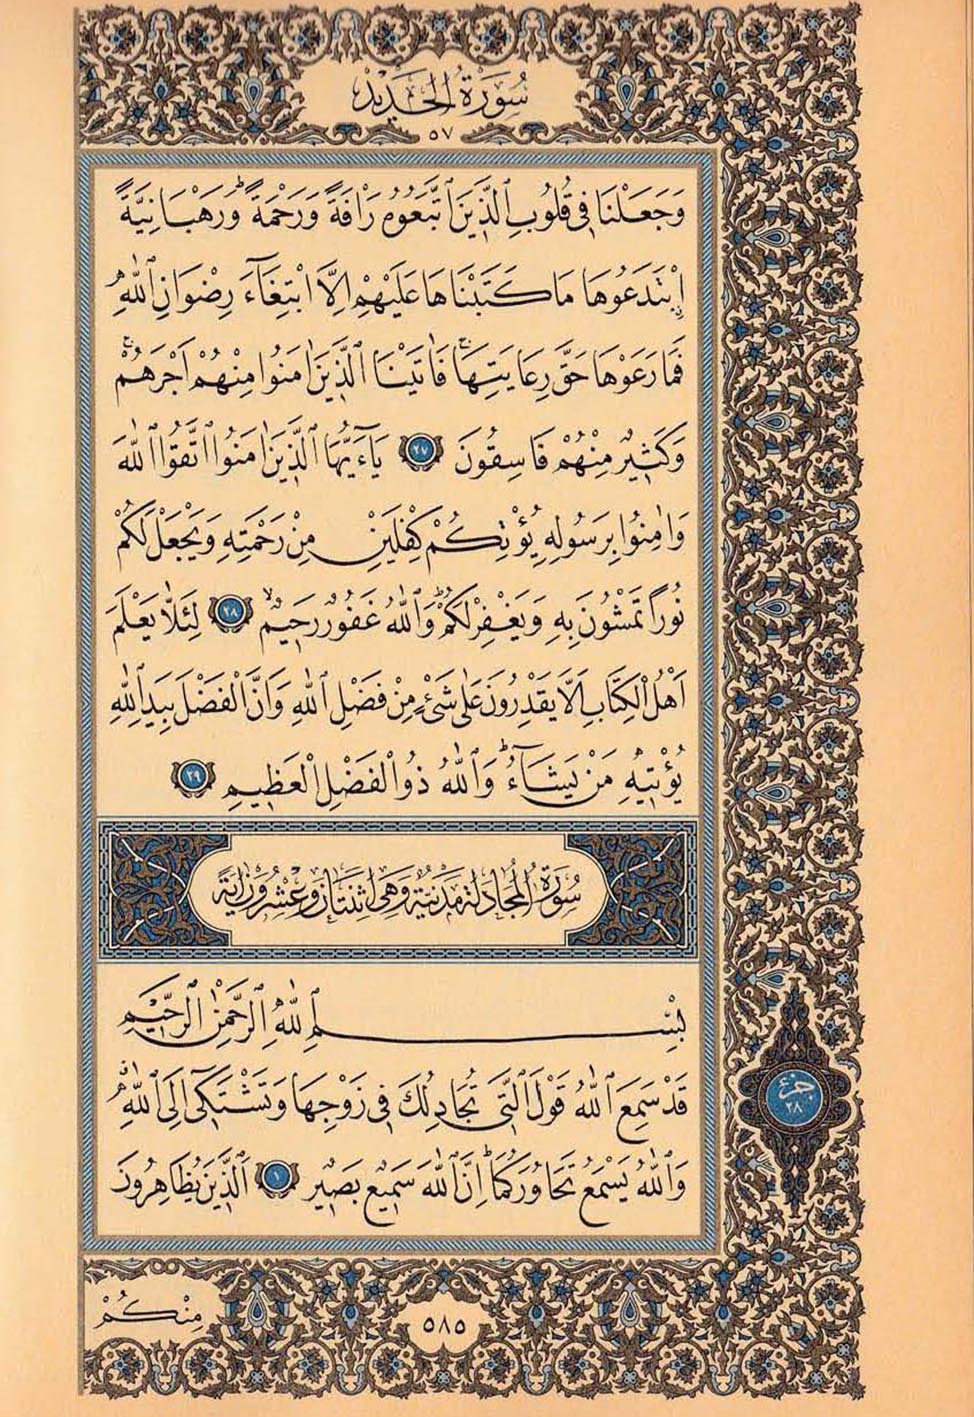 سُورَةُ الْحَدِيدِ
٥٧
وَجَعَلْنَا فِي قُلُوبِ الَّذِينَ اتَّبَعُوهُ رَاْفَةً وَرَحْمَةً وَرَهْبَانِيَّةً
اِبْتَدَعُوهَا مَا كَتَبْنَاهَا عَلَيْهِمْ اِلَّا ابْتِغَٓاءَ رِضْوَانِ اللّٰهِ
فَمَا رَعَوْهَا حَقَّ رِعَايَتِهَاۚ فَاٰتَيْنَا الَّذِينَ اٰمَنُوا مِنْهُمْ اَجْرَهُمْۚ
وَكَثِيرٌ مِنْهُمْ فَاسِقُونَ ٢٧ يَٓا اَيُّهَا الَّذِينَ اٰمَنُوا اتَّقُوا اللّٰهَ
وَاٰمِنُوا بِرَسُولِهِ يُؤْتِكُمْ كِفْلَيْنِ مِنْ رَحْمَتِهِ وَيَجْعَلْ لَكُمْ
نُورًا تَمْشُونَ بِهِ وَيَغْفِرْ لَكُمْۜ وَاللّٰهُ غَفُورٌ رَحِيمٌۙ ٢٨ لِئَلَّا يَعْلَمَ
اَهْلُ الْكِتَابِ اَلَّا يَقْدِرُونَ عَلٰى شَيْءٍ مِنْ فَضْلِ اللّٰهِ وَاَنَّ الْفَضْلَ بِيَدِ اللّٰهِ
يُؤْتِيهِ مَنْ يَشَٓاءُۜ وَاللّٰهُ ذُو الْفَضْلِ الْعَظِيمِ ٢٩
سُورَةُ الْمُجَادِلَةِ مَدَنِيَّةٌ وَهِيَ اثْنَتَانِ وَعِشْرُونَ اٰيَةً
بِسْمِ اللّٰهِ الرَّحْمٰنِ الرَّحِيمِ
قَدْ سَمِعَ اللّٰهُ قَوْلَ الَّتِي تُجَادِلُكَ فِي زَوْجِهَا وَتَشْتَكِٓي اِلَى اللّٰهِۗ
وَاللّٰهُ يَسْمَعُ تَحَاوُرَكُمَاۜ اِنَّ اللّٰهَ سَمِيعٌ بَصِيرٌ ١ اَلَّذِينَ يُظَاهِرُونَ
جزئ
٢٨
مِنْكُمْ
٥٨٥